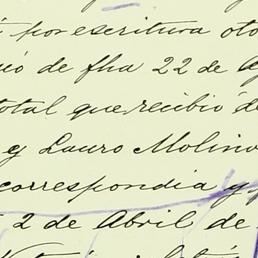 por escritura oto
de fha 22 de A
total que recibió de
y Lauro Molino
correspondia y
2 de Abril de